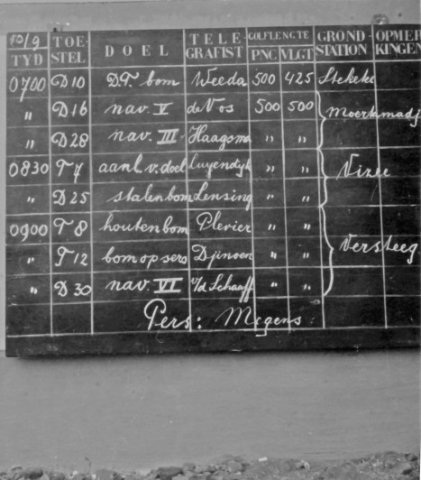 13/9 TOE- DOEL TELE- GOLFLENGTE GROND- OPMER
TYD STEL GRAFIST PNC VLGT STATION KINGEN
0700 D10 D.T. bom Weeda 500 425 Stekete
„ D16 nav. V de Vos 500 500 Moerkmadj
„ D28 nav. III Haagsma „ „
0830 T7 aanl. v. doel Luyendyk „ „ Viree
„ D25 stalen bom Lensing „ „
0900 T8 houten bom Plevier „ „
„ T12 bom op sero Djinoen „ „ Versteeg
„ D30 nav. VI v/d Schaaff „ „
Pers: Megens